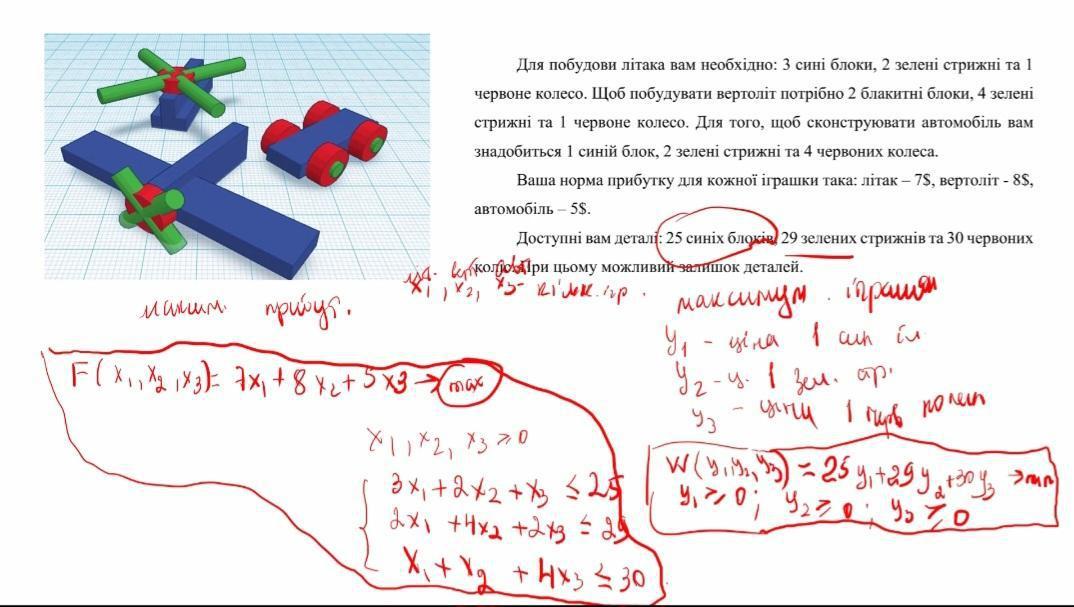 Для побудови літака вам необхідно: 3 сині блоки, 2 зелені стрижні та 1
червоне колесо. Щоб побудувати вертоліт потрібно 2 блакитні блоки, 4 зелені
стрижні та 1 червоне колесо. Для того, щоб сконструювати автомобіль вам
знадобиться 1 синій блок, 2 зелені стрижні та 4 червоних колеса.
Ваша норма прибутку для кожної іграшки така: літак – 7$, вертоліт - 8$,
автомобіль – 5$.
Доступні вам деталі: 25 синіх блоків, 29 зелених стрижнів та 30 червоних
коліс. При цьому можливий залишок деталей.
x₁, x₂, x₃ -
максим. прибут.
F(x₁,x₂,x₃)= 7x₁+8x₂+5x₃→max
x₁, x₂, x₃ ≥ 0
3x₁+2x₂+x₃ ≤ 25
2x₁+4x₂+2x₃ ≤ 29
x₁+x₂+4x₃ ≤ 30
максимум
y₁ - ціна 1 син
y₂ - ц. 1 зел. стр.
y₃ - ціна 1 черв
W(y₁,y₂,y₃) = 25y₁+29y₂+30y₃ →min
y₁ ≥ 0; y₂ ≥ 0; y₃ ≥ 0